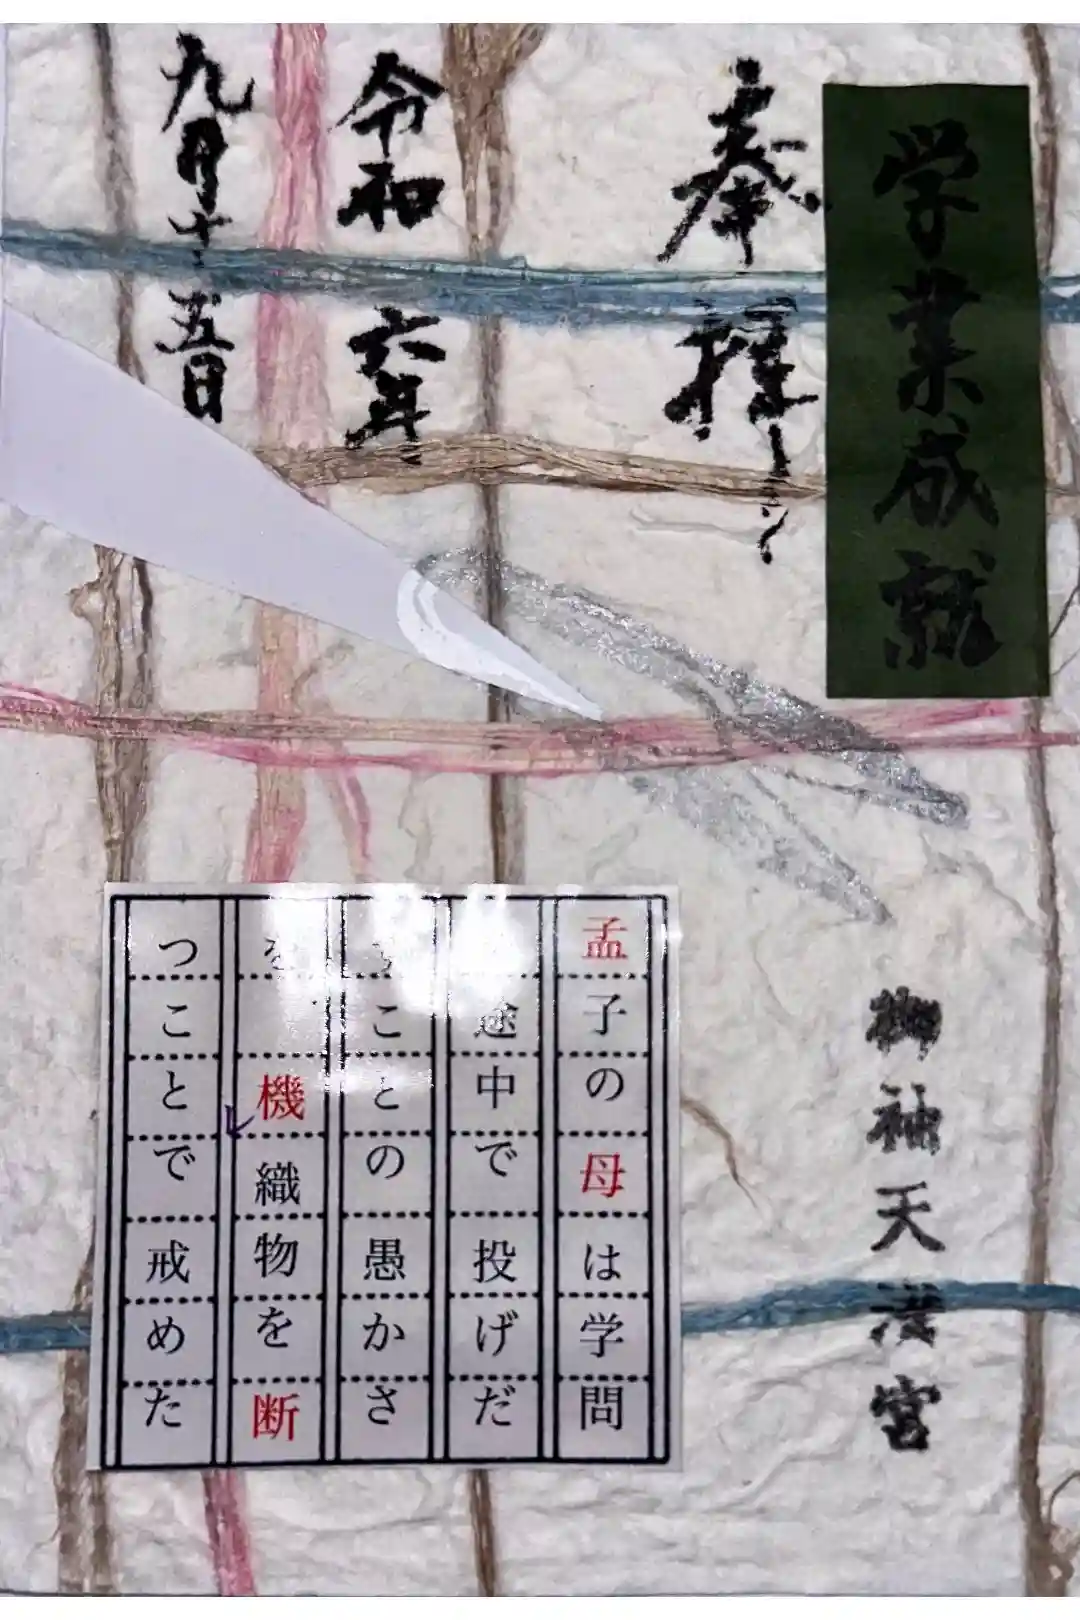 学業成就
奉拝
令和六年
九月十五日
御袖天満宮
孟子の母は学問
途中で投げだ
すことの愚かさ
を機織物を断
つことで戒めた